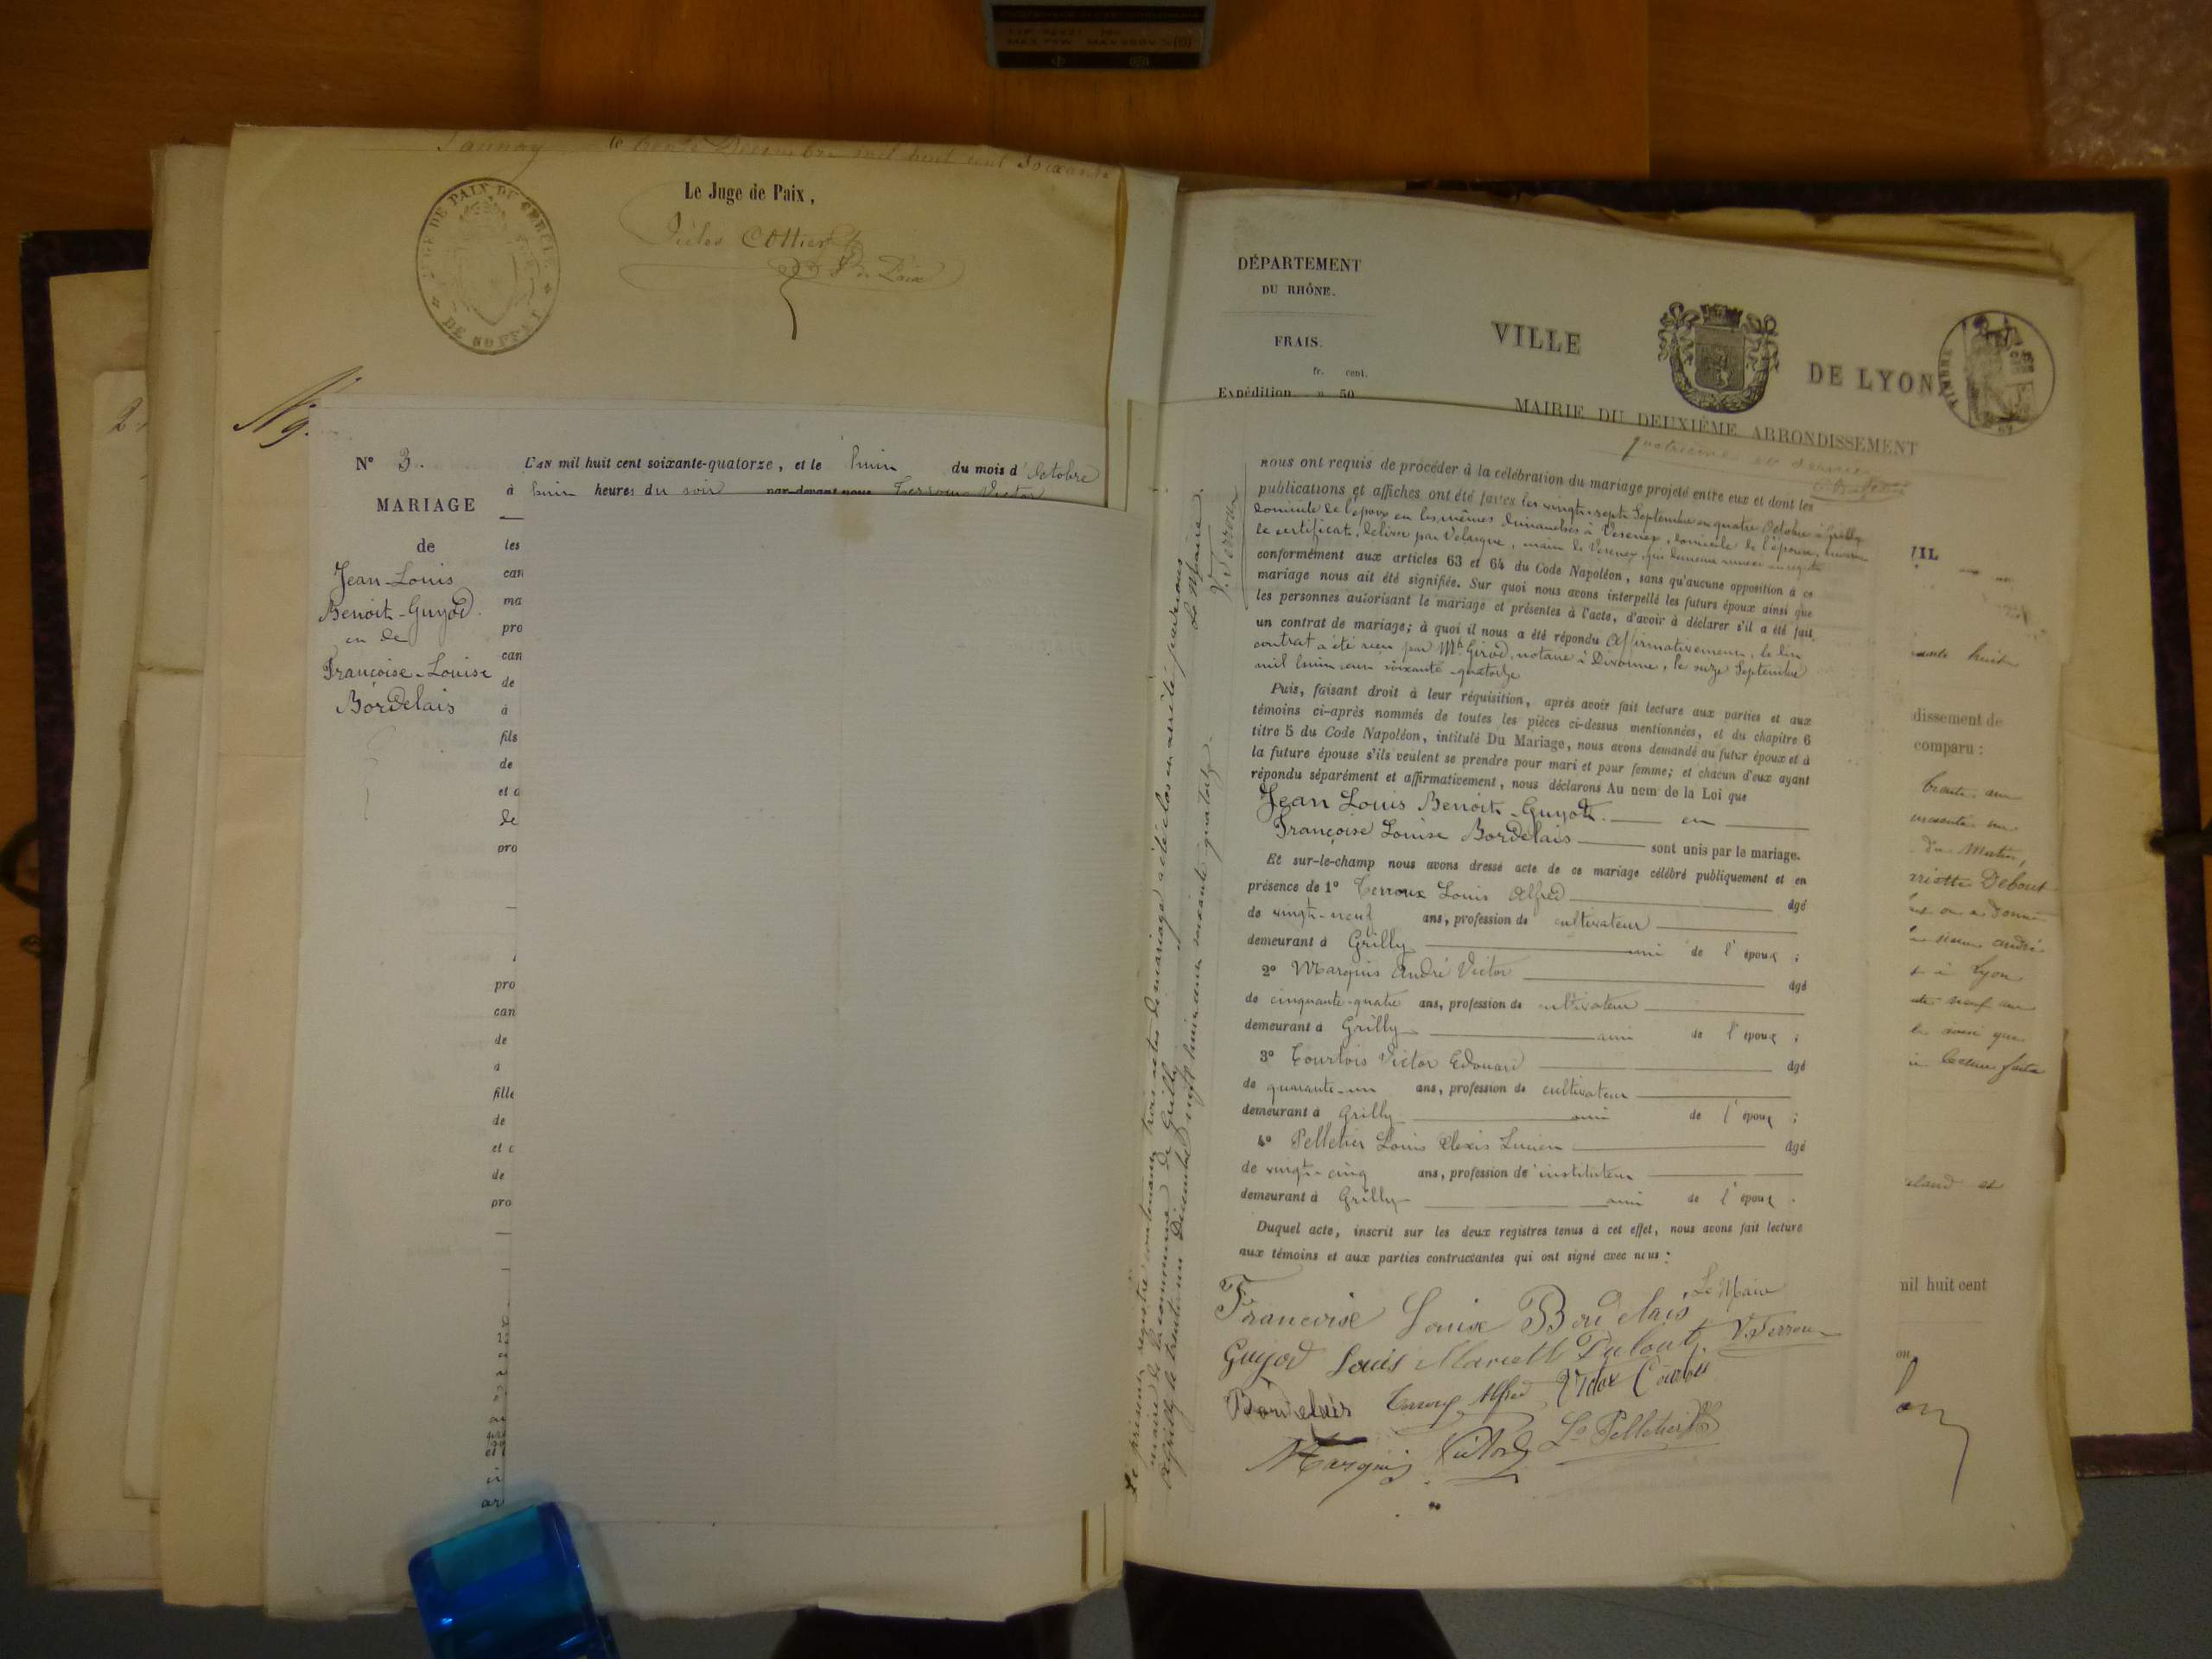 le trente Décembre mil huit cent soixante
Le Juge de Paix,
DE PAIX DU CERCLE
N° 3.
MARIAGE
de
Jean-Louis
Benoit-Guyod.
et de
Françoise-Louise
Bordelais
L'AN mil huit cent soixante-quatorze, et le huit du mois d'Octobre
à huit heures du soir par-devant nous Terroux Victor
les
can
ma
pro
can
de
à
fils
de
et d
de
pro
pro
can
de
à
fille
de
et d
de
pro
Le présent registre contenant trois actes de mariage a été clos et arrêté par nous
maire de la commune de Grilly
A Grilly le trente un Décembre mil huit cent soixante quatorze.
Le Maire
V. Terroux
DÉPARTEMENT
DU RHÔNE.
FRAIS.
fr. cent.
Expédition » 50
VILLE DE LYON
TIMBRE
MAIRIE DU DEUXIÈME ARRONDISSEMENT
nous ont requis de procéder à la célébration du mariage projeté entre eux et dont les
publications et affiches ont été faites les vingt-sept Septembre et quatre Octobre à Grilly
domicile de l'époux et les mêmes dimanches à Vesenex, domicile de l'épouse, suivant
le certificat délivré par Velasque, maire de Vesenex, qui demeure annexé au registre
conformément aux articles 63 et 64 du Code Napoléon, sans qu'aucune opposition à ce
mariage nous ait été signifiée. Sur quoi nous avons interpellé les futurs époux ainsi que
les personnes autorisant le mariage et présentes à l'acte, d'avoir à déclarer s'il a été fait
un contrat de mariage; à quoi il nous a été répondu affirmativement, le dit
contrat a été reçu par Me Girod, notaire à Divonne, le onze Septembre
mil huit cent soixante-quatorze
Puis, faisant droit à leur réquisition, après avoir fait lecture aux parties et aux
témoins ci-après nommés de toutes les pièces ci-dessus mentionnées, et du chapitre 6
titre 5 du Code Napoléon, intitulé Du Mariage, nous avons demandé au futur époux et à
la future épouse s'ils veulent se prendre pour mari et pour femme; et chacun d'eux ayant
répondu séparément et affirmativement, nous déclarons Au nom de la Loi que
Jean Louis Benoit-Guyod. et
Françoise Louise Bordelais sont unis par le mariage.
Et sur-le-champ nous avons dressé acte de ce mariage célébré publiquement et en
présence de 1° Terroux Louis Alfred âgé
de vingt-neuf ans, profession de cultivateur
demeurant à Grilly ami de l'époux;
2° Marquis André Victor âgé
de cinquante-quatre ans, profession de cultivateur
demeurant à Grilly ami de l'époux;
3° Courtois Victor Edouard âgé
de quarante-un ans, profession de cultivateur
demeurant à Grilly ami de l'époux;
4° Pelletier Louis Alexis Lucien âgé
de vingt-cinq ans, profession de instituteur
demeurant à Grilly ami de l'époux.
Duquel acte, inscrit sur les deux registres tenus à cet effet, nous avons fait lecture
aux témoins et aux parties contractantes qui ont signé avec nous:
Le Maire
Francoise Louise Bordelais
V. Terroux
Guyod Louis
Bordelais Terroux Alfred Victor Courtois
Marquis Victor Ls Pelletier
VIL
huit
dissement de
comparu :
trente ans
du Matin,
Debout
on a donné
à Lyon
neuf ans
ainsi que
lecture faite
mil huit cent